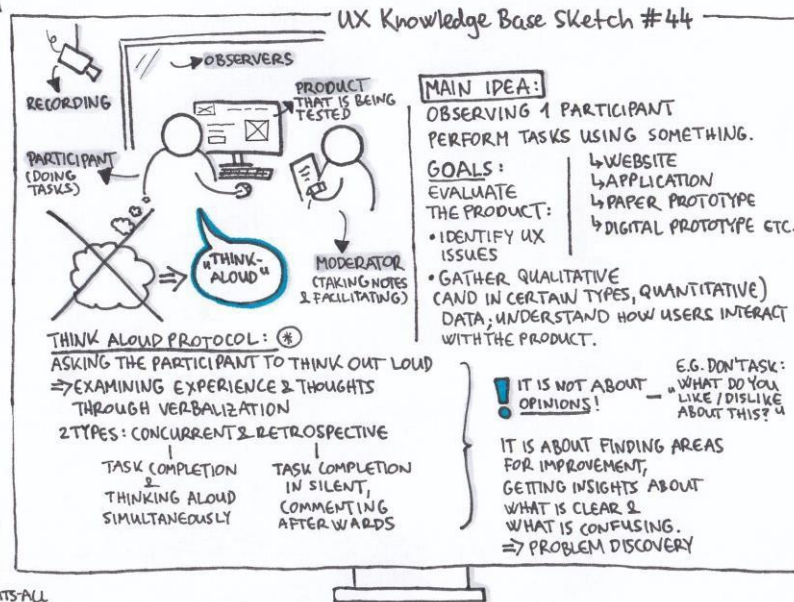 UX Knowledge Base Sketch #44
OBSERVERS
RECORDING
PRODUCT
THAT IS BEING
TESTED
PARTICIPANT
(DOING
TASKS)
"THINK-
ALOUD"
MODERATOR
(TAKING NOTES
& FACILITATING)
MAIN IDEA:
OBSERVING 1 PARTICIPANT
PERFORM TASKS USING SOMETHING.
↳ WEBSITE
↳ APPLICATION
↳ PAPER PROTOTYPE
↳ DIGITAL PROTOTYPE ETC.
GOALS:
EVALUATE
THE PRODUCT:
• IDENTIFY UX
ISSUES
• GATHER QUALITATIVE
(AND IN CERTAIN TYPES, QUANTITATIVE)
DATA; UNDERSTAND HOW USERS INTERACT
WITH THE PRODUCT.
THINK ALOUD PROTOCOL: *
ASKING THE PARTICIPANT TO THINK OUT LOUD
=> EXAMINING EXPERIENCE & THOUGHTS
THROUGH VERBALIZATION
2 TYPES: CONCURRENT & RETROSPECTIVE
TASK COMPLETION
&
THINKING ALOUD
SIMULTANEOUSLY
TASK COMPLETION
IN SILENT,
COMMENTING
AFTERWARDS
! IT IS NOT ABOUT
OPINIONS!
E.G. DON'T ASK:
"WHAT DO YOU
LIKE / DISLIKE
ABOUT THIS?"
IT IS ABOUT FINDING AREAS
FOR IMPROVEMENT,
GETTING INSIGHTS ABOUT
WHAT IS CLEAR &
WHAT IS CONFUSING.
=> PROBLEM DISCOVERY